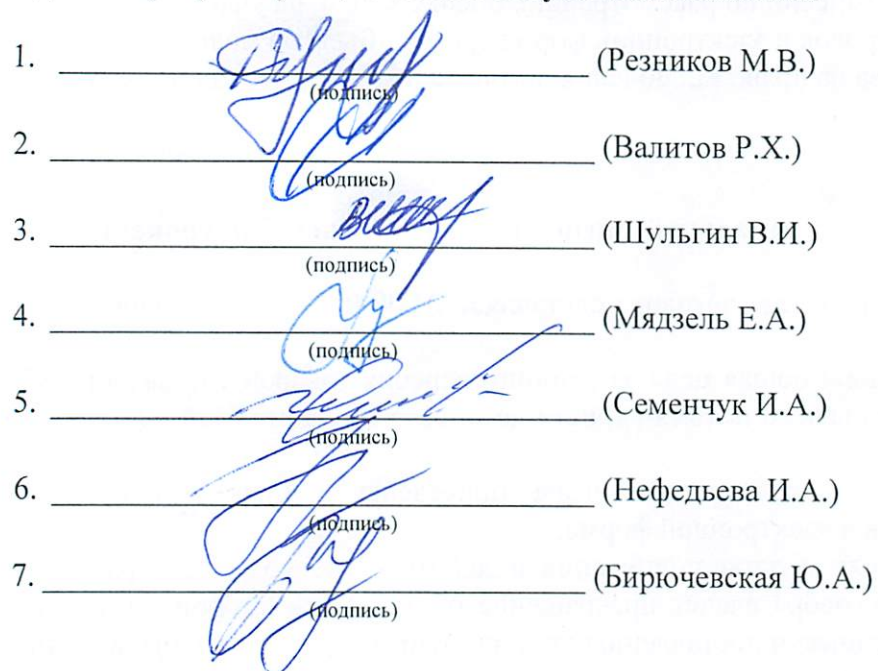 1. (Резников М.В.)
(подпись)
2. (Валитов Р.Х.)
(подпись)
3. (Шульгин В.И.)
(подпись)
4. (Мядзель Е.А.)
(подпись)
5. (Семенчук И.А.)
(подпись)
6. (Нефедьева И.А.)
(подпись)
7. (Бирючевская Ю.А.)
(подпись)